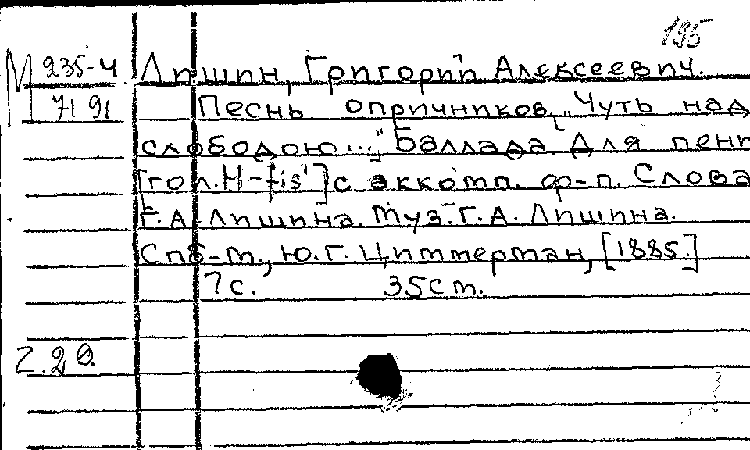 195
М 235-4 Лишин, Григорий Алексеевич.
71 91 Песнь опричников. [„Чуть над
слободою..."] Баллада. Для пени
[гол. H-fis'] с аккомп. ф-п. Слова
Г.А. Лишина. Муз. Г.А. Лишина.
Спб-М., Ю.Г. Циммерман, [1885.]
7с. 35см.
2.20.